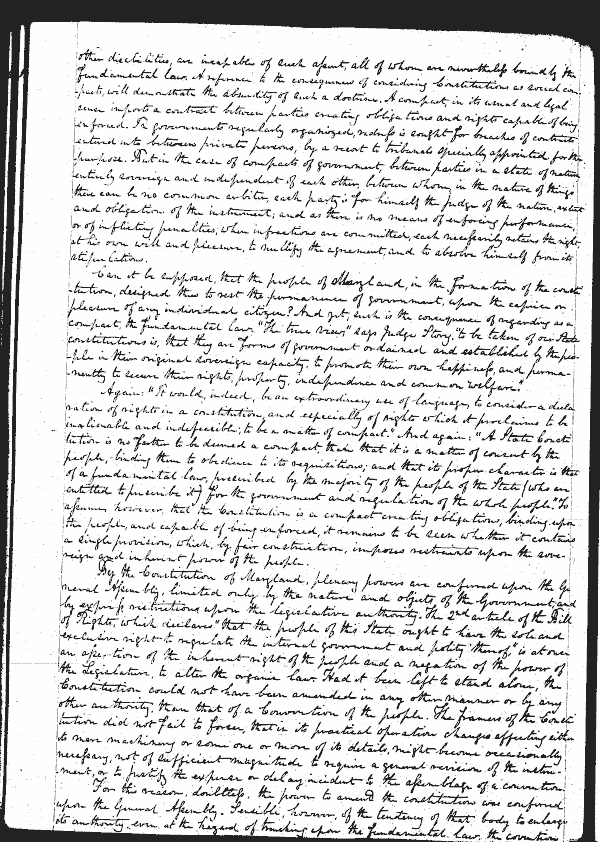 other disabilities, are incapable of such assent, all of whom are nevertheless bound by the
fundamental law. A reference to the consequences of considering Constitutions as social com-
pacts, will demonstrate the absurdity of such a doctrine. A compact, in its usual and legal
sense imports a contract between parties creating obligations and rights capable of being
enforced. In governments regularly organized, redress is sought for breaches of contracts
entered into between private persons, by a resort to tribunals specially appointed for the
purpose. But in the case of compacts of government, between parties in a state of nature
entirely sovereign and independent of each other, between whom, in the nature of things
there can be no common arbiter, each party is for himself the judge of the nature, extent
and obligation of the instrument; and as there is no means of enforcing performance,
or of inflicting penalties, when infractions are committed, each necessarily retains the right,
at his own will and pleasure, to nullify the agreement, and to absolve himself from its
stipulations.
Can it be supposed, that the people of Maryland, in the formation of the consti
tution, designed thus to rest the permanence of government, upon the caprice or
pleasure of any individual citizen? And yet, such is the consequence of regarding as a
compact, the fundamental law. "The true view," says Judge Story, "to be taken of our State
constitutions is, that they are forms of government ordained and established by the peo-
ple in their original sovereign capacity, to promote their own happiness, and perma-
nently to secure their rights, property, independence and common welfare."
Again: "It would, indeed, be an extraordinary use of language, to consider a decla
ration of rights in a constitution, and especially of rights which it proclaims to be
inalienable and indefeasible, to be a matter of compact." And again: "A State Consti
tution is no farther to be deemed a compact, than that it is a matter of consent by the
people, binding them to obedience to its requisitions; and that its proper character is that
of a fundamental law, prescribed by the majority of the people of the State (who are
entitled to prescribe it) for the government and regulation of the whole people." To
assume, however, that the Constitution is a compact creating obligations, binding upon
the people, and capable of being enforced, it remains to be seen whether it contains
a single provision, which, by fair construction, imposes restraints upon the sove-
reign and inherent power of the people.
By the Constitution of Maryland, plenary powers are conferred upon the Ge
neral Assembly, limited only by the nature and objects of the Government, and
by express restrictions upon the legislative authority. The 2nd article of the Bill
of Rights, which declares "that the people of this State ought to have the sole and
exclusive right to regulate the internal government and polity thereof" is at once
an assertion of the inherent right of the people and a negation of the power of
the Legislature, to alter the organic law. Had it been left to stand alone, the
Constitution could not have been amended in any other manner or by any
other authority, than that of a Convention of the people. The framers of the Consti
tution did not fail to foresee, that in its practical operation changes affecting either
its mere machinery or some one or more of its details, might become occasionally
necessary, not of sufficient magnitude to require a general revision of the instru-
ment, or to justify the expense or delay incident to the assemblage of a convention.
For this reason, doubtless, the power to amend the constitution was conferred
upon the General Assembly. Sensible, however, of the tendency of that body to enlarge
its authority, even at the hazard of trenching upon the fundamental law, the convention